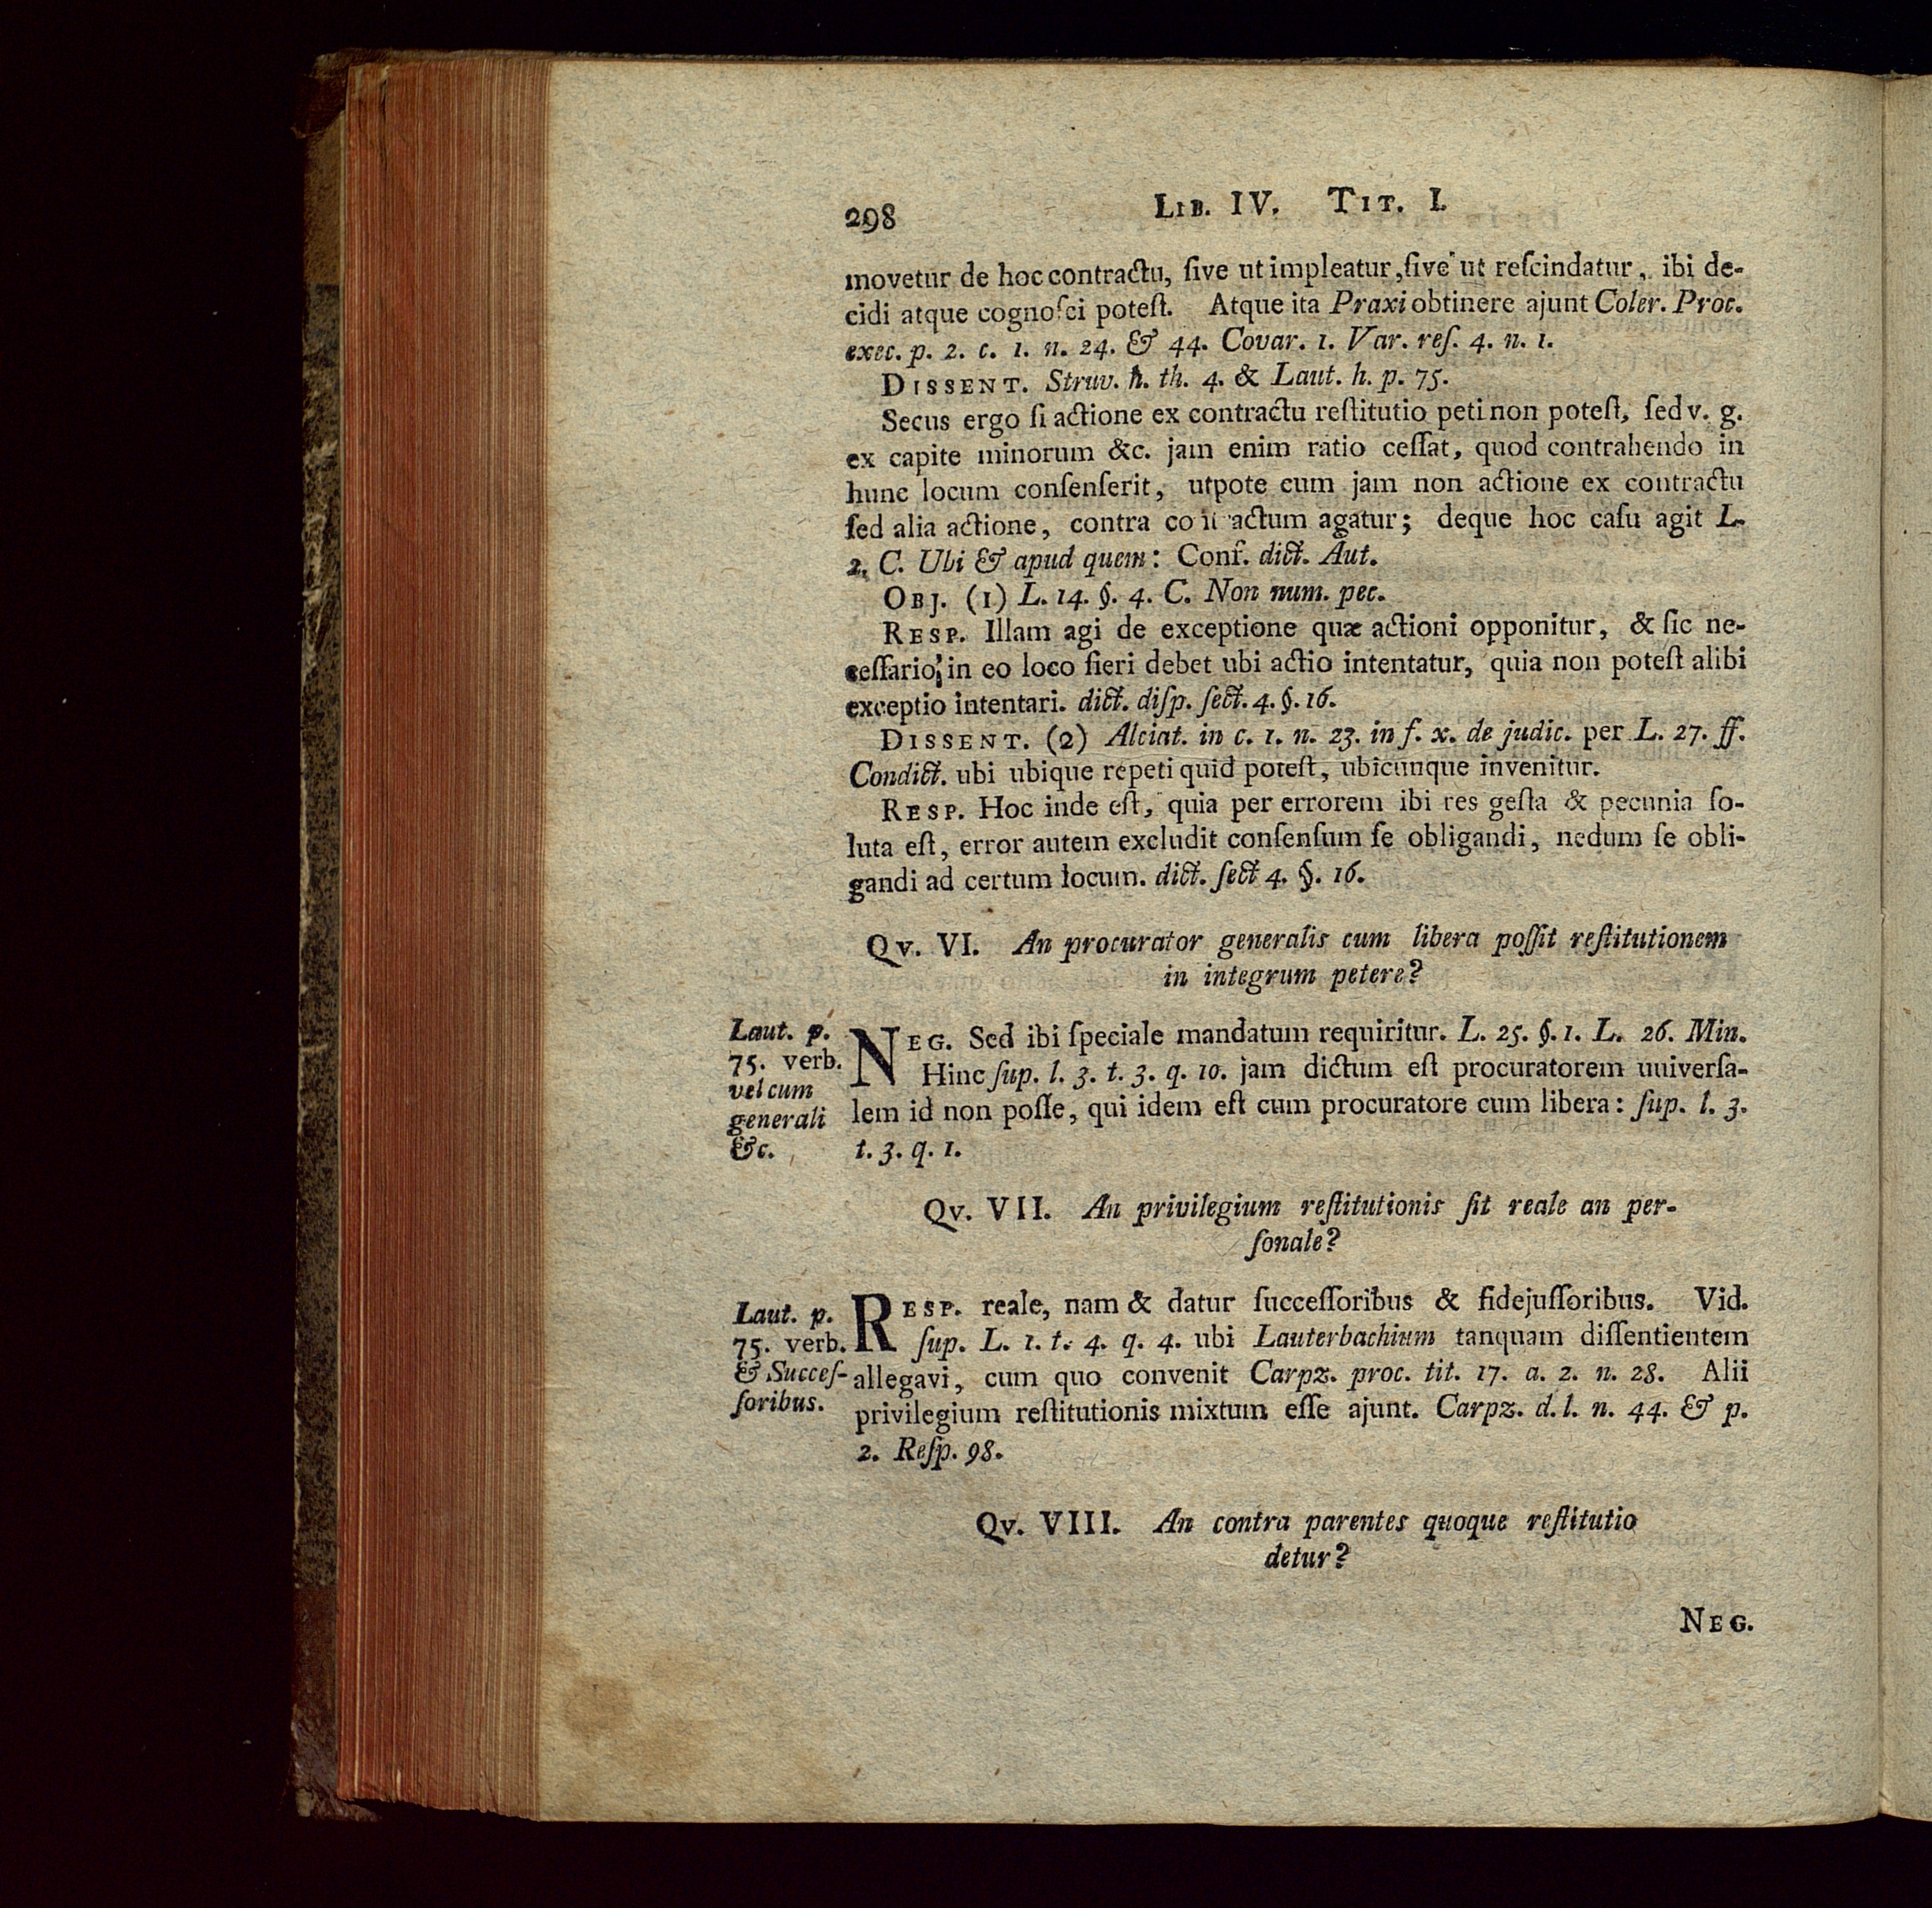 298 LIB. IV. TIT. I.
movetur de hoc contractu, ſive ut impleatur, ſive ut reſcindatur, ibi de-
cidi atque cognoſci poteſt. Atque ita Praxi obtinere ajunt Coler. Proc.
exec. p. 2. c. 1. n. 24. & 44. Covar. 1. Var. reſ. 4. n. 1.
DISSENT. Struv. h. th. 4. & Laut. h. p. 75.
Secus ergo ſi actione ex contractu reſtitutio peti non poteſt, ſed v. g.
ex capite minorum &c. jam enim ratio ceſſat, quod contrahendo in
hunc locum conſenſerit, utpote cum jam non actione ex contractu
ſed alia actione, contra co it actum agatur; deque hoc caſu agit L.
2. C. Ubi & apud quem: Conf. dict. Aut.
OBJ. (1) L. 14. §. 4. C. Non num. pec.
RESP. Illam agi de exceptione quæ actioni opponitur, & ſic ne-
ceſſario in eo loco fieri debet ubi actio intentatur, quia non poteſt alibi
exceptio intentari. dict. diſp. ſect. 4. §. 16.
DISSENT. (2) Alciat. in c. 1. n. 23. in f. x. de judic. per L. 27. ff.
Condict. ubi ubique repeti quid poteſt, ubicunque invenitur.
RESP. Hoc inde eſt, quia per errorem ibi res geſta & pecunia ſo-
luta eſt, error autem excludit conſenſum ſe obligandi, nedum ſe obli-
gandi ad certum locum. dict. ſect 4. §. 16.
Qv. VI. An procurator generalis cum libera poſſit reſtitutionem
in integrum petere?
Laut. p.
75. verb.
vel cum
generali
&c.
NEG. Sed ibi ſpeciale mandatum requiritur. L. 25. §. 1. L. 26. Min.
Hinc ſup. l. 3. t. 3. q. 10. jam dictum eſt procuratorem univerſa-
lem id non poſſe, qui idem eſt cum procuratore cum libera: ſup. l. 3.
t. 3. q. 1.
Qv. VII. An privilegium reſtitutionis ſit reale an per-
ſonale?
Laut. p.
75. verb.
& Succeſ-
ſoribus.
RESP. reale, nam & datur ſucceſſoribus & fidejuſſoribus. Vid.
ſup. L. 1. t. 4. q. 4. ubi Lauterbachium tanquam diſſentientem
allegavi, cum quo convenit Carpz. proc. tit. 17. a. 2. n. 28. Alii
privilegium reſtitutionis mixtum eſſe ajunt. Carpz. d. l. n. 44. & p.
2. Reſp. 98.
Qv. VIII. An contra parentes quoque reſtitutio
detur?
NEG.